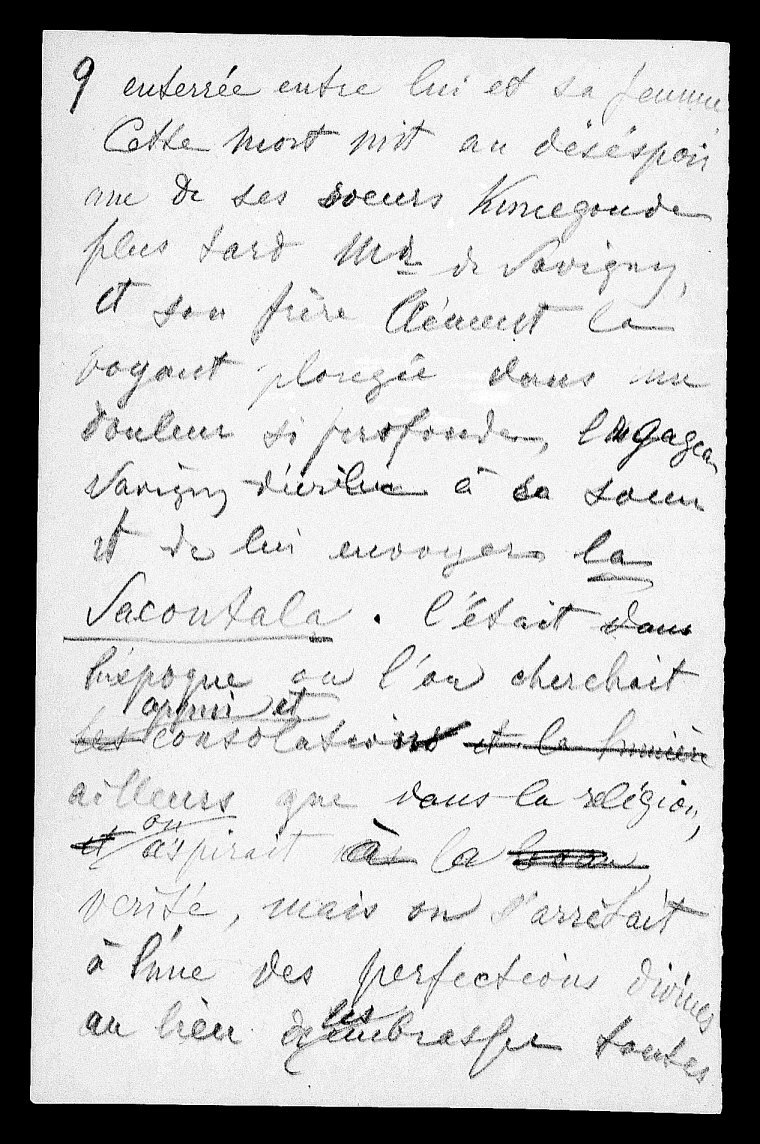 9 enterrée entre lui et sa femme
Cette mort mit au déséspoir
une de ses soeurs Kunegonde
plus tard Mde de Savigny,
et son frère Clément la
voyant plongée dans une
douleur si profonde, engagea
Savigny d'écrire à sa soeur
et de lui envoyer la
Sacontala. C'était dans
l'époque ou l'on cherchait
appui et
les consolations et la lumière
ailleurs que dans la religion,
on
et aspirait à la
verité, mais on s'arrêtait
à l'une des perfections divines
les
au lieu d'embrasser toutes